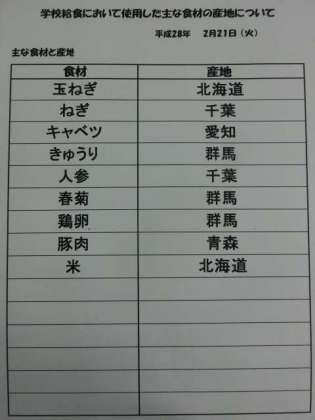 学校給食において使用した主な食材の産地について
平成28年 2月21日（火）
主な食材と産地
食材 産地
玉ねぎ 北海道
ねぎ 千葉
キャベツ 愛知
きゅうり 群馬
人参 千葉
春菊 群馬
鶏卵 群馬
豚肉 青森
米 北海道